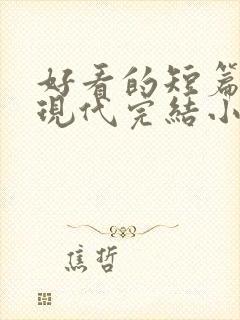 好看的短篇
現代完結小
焦哲